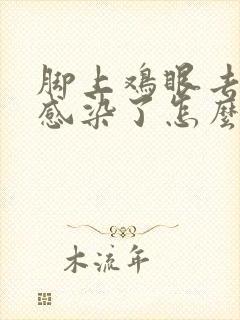 脚上鸡眼去
感染了怎麼
木流年